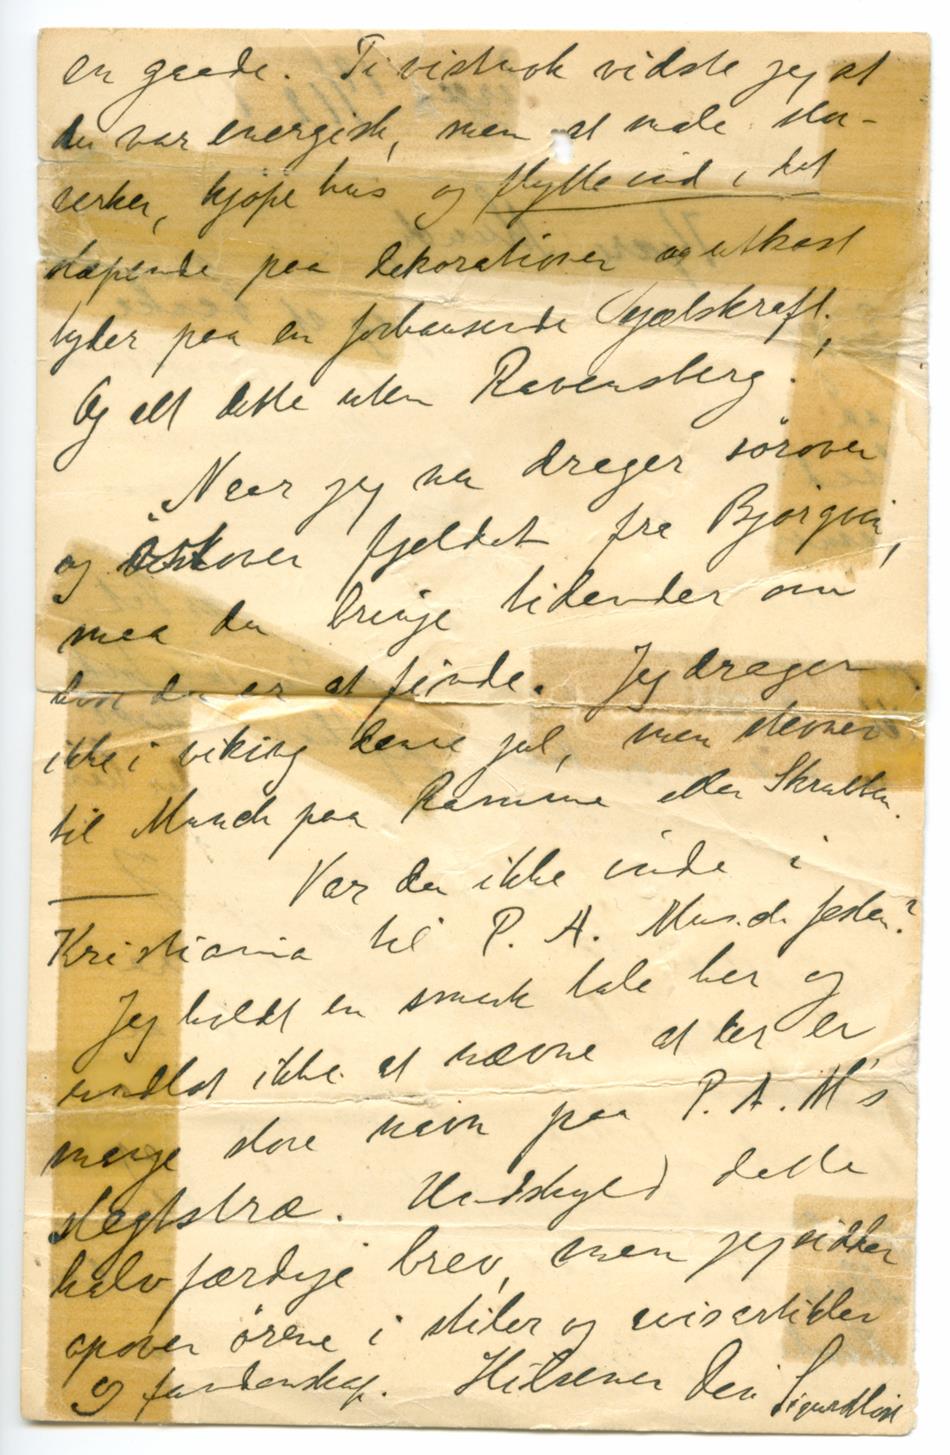 en gaade. Ti vistnok vidste jeg at
du var energisk, men at male stor-
verker, kjøpe hus og flytte ind i det
støpende paa dekorationer og utkast
tyder paa en forbausende sjælskraft.
Og alt dette uten Ravensberg.
Naar jeg nu drager sørover
og østover fjeldet fra Bjørgvin,
maa du bringe tidender om
hvor du er at finde. Jeg drager
ikke i viking denne jul, men stevner
til Munch paa Ramme eller Skrubben.
Var du ikke inde i
Kristiania til P. A. Munch festen?
Jeg holdt en smuk tale her og
undlot ikke at nævne at der er
mange store navn paa P. A. M's
slegtstræ. Undskyld dette
halvfærdige brev, men jeg sidder
opover ørene i stiler og avisartikler
og fandenskap. Hilsener Din Sigurd Høst